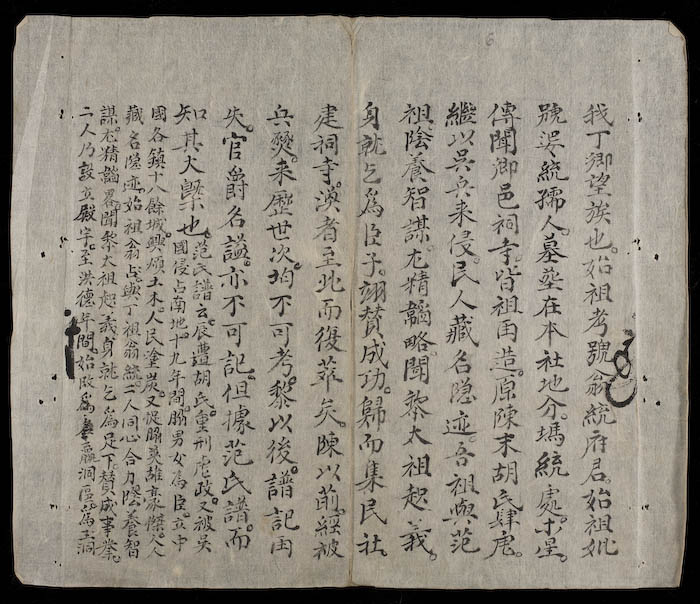 我丁卿望族也。始祖考號翁統府君。始祖妣
號婆統孺人。墓塟在本社地分。塢統處。星
傳聞卿邑祠寺。皆祖造。原陳末胡氏肆虐。
繼以吳兵来侵。民人藏名隐迹。吾祖與范
祖。陰養智謀。尤精韜略。聞黎太祖起義。
身就乞爲臣子。翊賛成功。歸而集民社。
建祠寺。漠者至此而復華矣。陳以前經被
兵燹。来歷世次均不可考。黎以後。譜記
失。官爵名諡。亦不可記。但據范氏譜。而
知其大槩也。
范氏譜云。辰遭胡氏重刑虐政。又被吳
國侵占南地。十九年間。脇男女為臣。立中
國各鎮十八餘城。興煩土木。人民塗炭。又捉脇英雄豪傑。人人
藏名隐迹。始祖翁占與丁祖翁統。二人同心合力。陰養智
謀。尤精韜畧。聞黎太祖起義。身就乞爲足下。賛成事挙。
二人乃設立殿宇。至洪德年間。始改爲靈洞區。爲玉洞